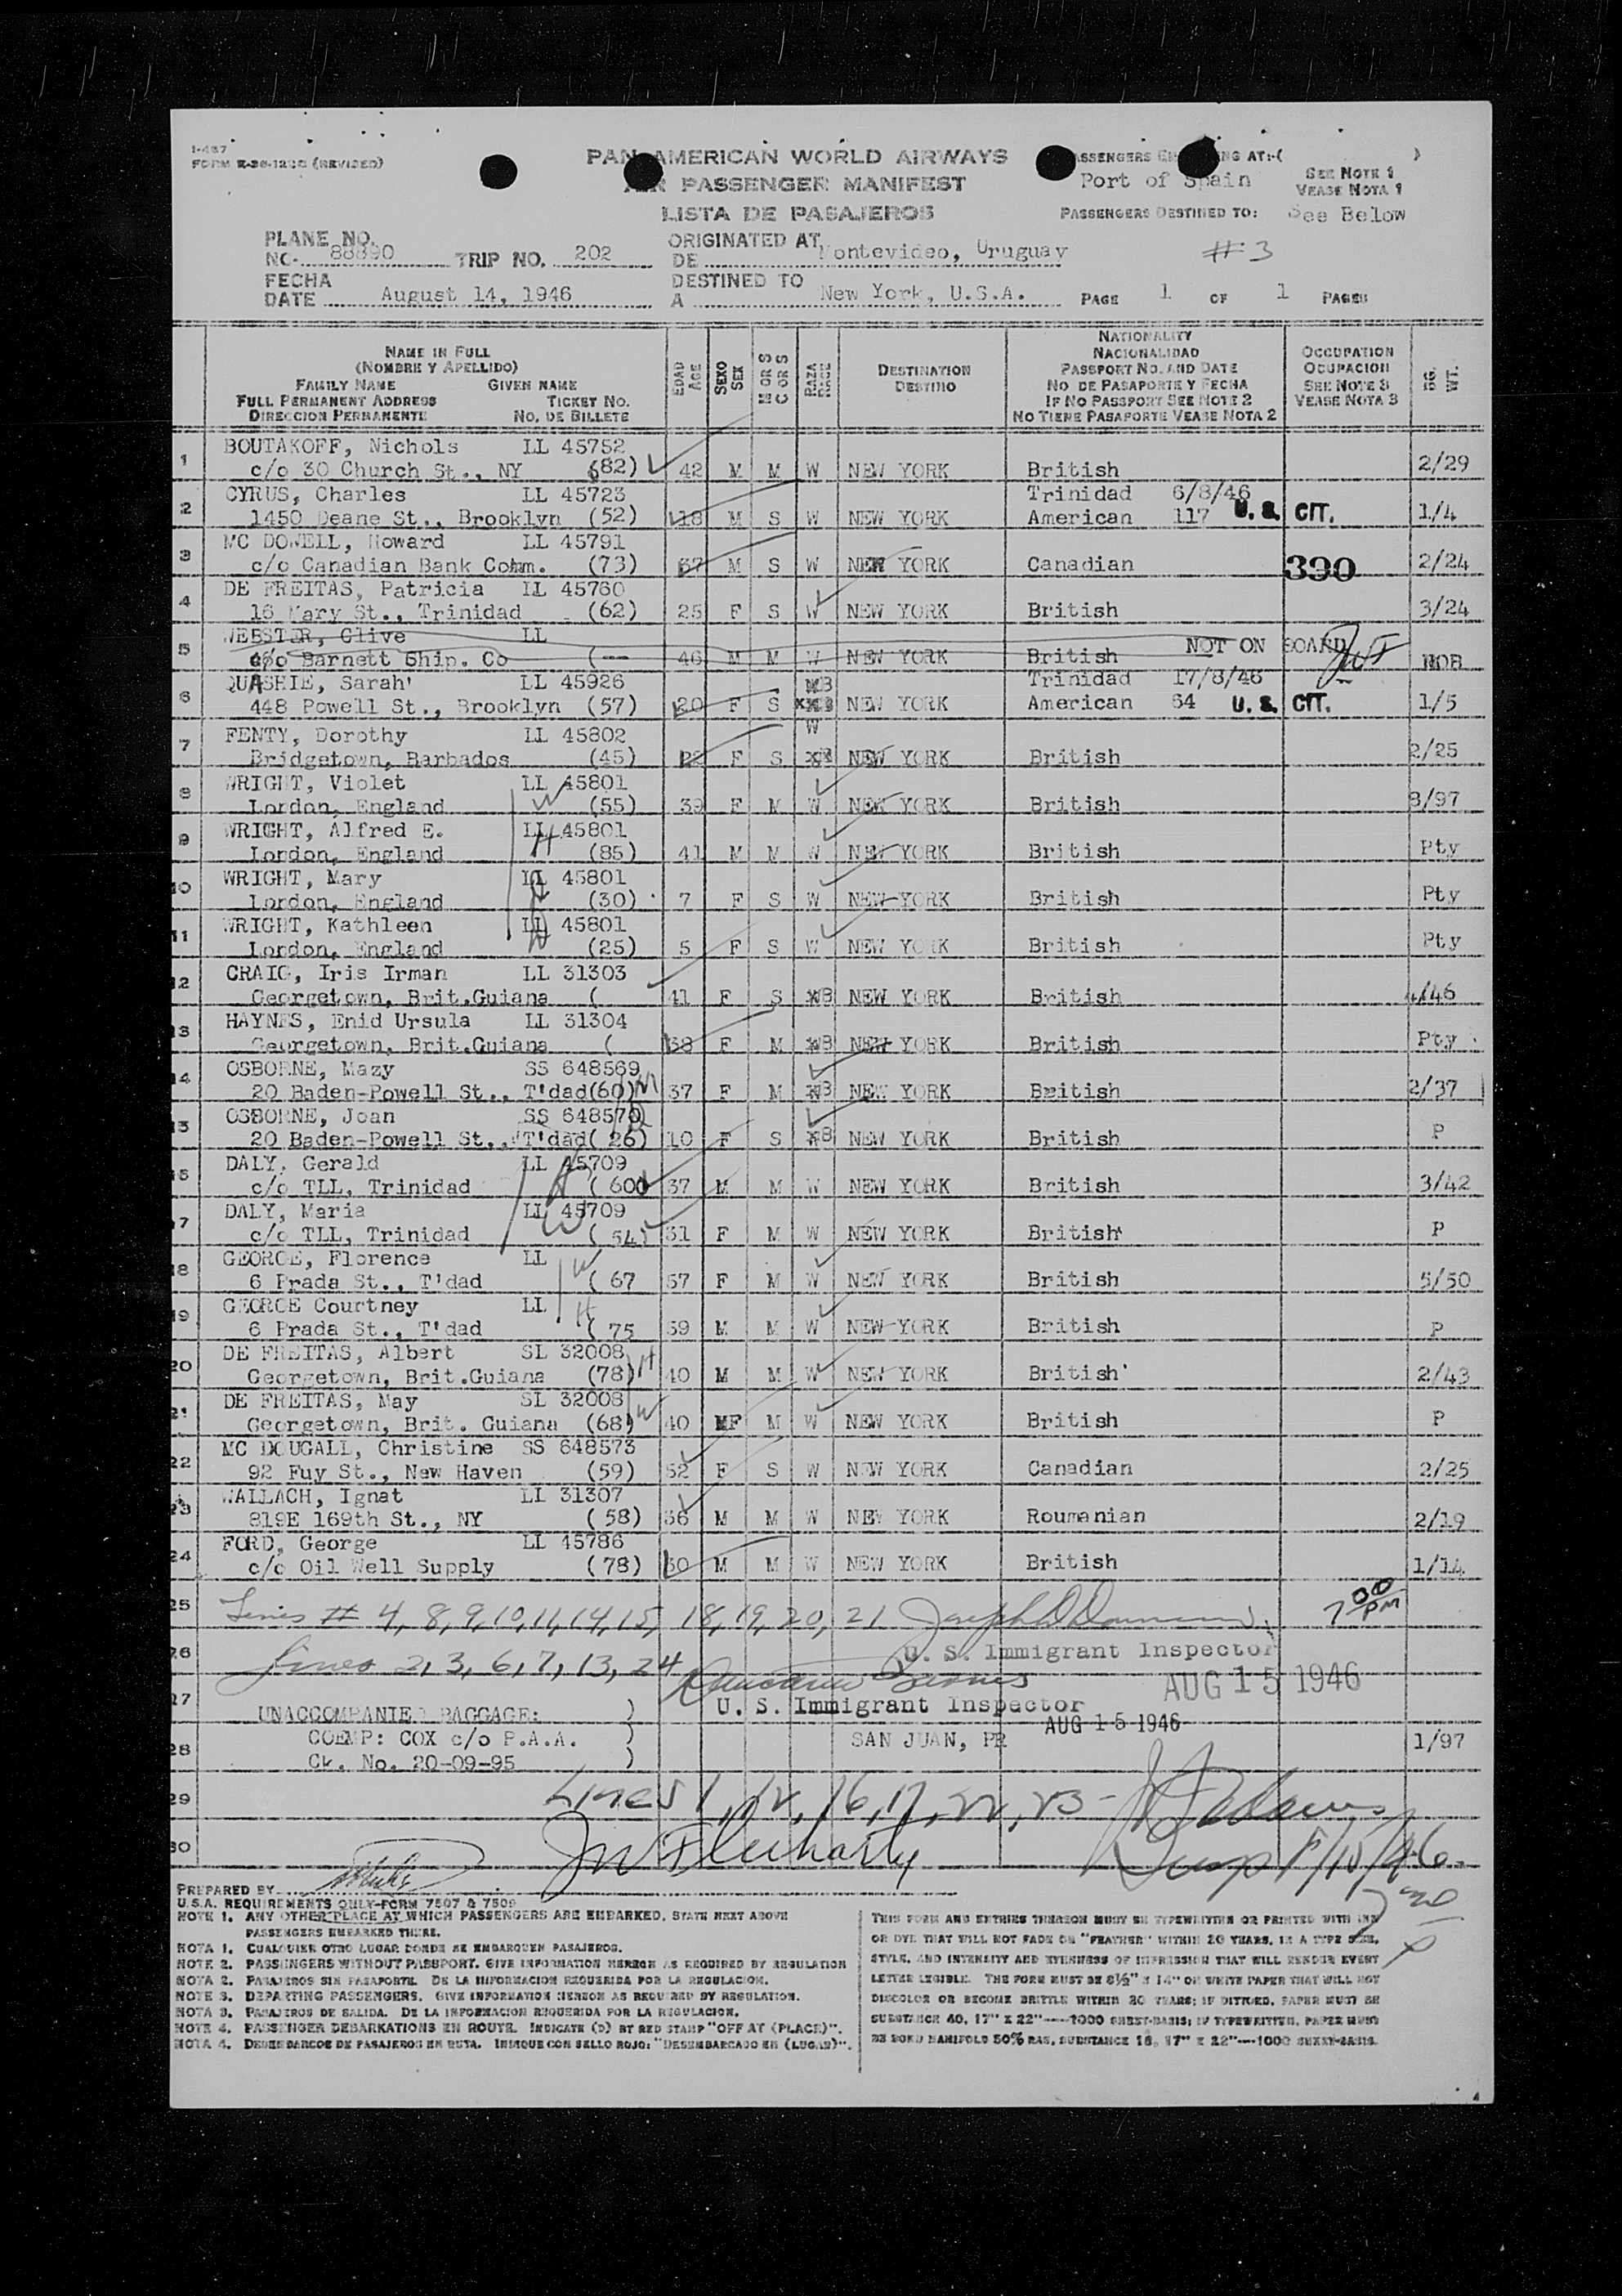 I-487
FORM E-36-122C (REVISED)
PAN AMERICAN WORLD AIRWAYS
AIR PASSENGER MANIFEST
LISTA DE PASAJEROS
PASSENGERS EMBARKING AT:-( )
Port of Spain
SEE NOTE 1
VEASE NOTA 1
PASSENGERS DESTINED TO: See Below
PLANE NO.
NC- 88890 TRIP NO. 202
ORIGINATED AT
DE Montevideo, Uruguay
#3
FECHA
DATE August 14, 1946
DESTINED TO
A New York, U.S.A.
PAGE 1 OF 1 PAGES
NAME IN FULL
(NOMBRE Y APELLIDO)
FAMILY NAME GIVEN NAME
FULL PERMANENT ADDRESS TICKET NO.
DIRECCION PERMANENTE NO. DE BILLETE
EDAD
AGE
SEXO
SEX
M OR S
C OR S
RAZA
RACE
DESTINATION
DESTINO
NATIONALITY
NACIONALIDAD
PASSPORT NO. AND DATE
NO DE PASAPORTE Y FECHA
IF NO PASSPORT SEE NOTE 2
NO TIENE PASAPORTE VEASE NOTA 2
OCCUPATION
OCUPACION
SEE NOTE 3
VEASE NOTA 3
BG.
WT.
1 BOUTAKOFF, Nichols LL 45752
c/o 30 Church St., NY (82) 42 M M W NEW YORK British 2/29
2 CYRUS, Charles LL 45723 Trinidad 6/8/46
1450 Deane St., Brooklyn (52) 18 M S W NEW YORK American 117 U.S. CIT. 1/4
3 MC DOWELL, Howard LL 45791
c/o Canadian Bank Comm. (73) 67 M S W NEW YORK Canadian 390 2/24
4 DE FREITAS, Patricia LL 45760
16 Mary St., Trinidad (62) 25 F S W NEW YORK British 3/24
5 WEBSTER, Clive LL NOT ON BOARD
c/o Barnett Ship. Co (--- 46 M M W NEW YORK British NOB
6 QUASHIE, Sarah LL 45926 Trinidad 17/8/46
448 Powell St., Brooklyn (57) 20 F S B NEW YORK American 64 U.S. CIT. 1/5
7 FENTY, Dorothy LL 45802 W
Bridgetown, Barbados (45) F S NEW YORK British 2/25
8 WRIGHT, Violet LL 45801
London, England W (55) 39 F M W NEW YORK British 8/97
9 WRIGHT, Alfred E. LL 45801
London, England H (85) 41 M M W NEW YORK British Pty
10 WRIGHT, Mary LL 45801
London, England (30) 7 F S W NEW YORK British Pty
11 WRIGHT, Kathleen LL 45801
London, England (25) 5 F S W NEW YORK British Pty
12 CRAIG, Iris Irman LL 31303
Georgetown, Brit.Guiana ( 41 F S B NEW YORK British 4/46
13 HAYNES, Enid Ursula LL 31304
Georgetown, Brit.Guiana ( 38 F M B NEW YORK British Pty
14 OSBORNE, Mazy SS 648569
20 Baden-Powell St., T'dad(60) M 37 F M B NEW YORK British 2/37
15 OSBORNE, Joan SS 648570
20 Baden-Powell St., T'dad( 26) 10 F S B NEW YORK British P
16 DALY, Gerald LL 45709
c/o TLL, Trinidad H ( 60) 37 M M W NEW YORK British 3/42
17 DALY, Maria LL 45709
c/o TLL, Trinidad W ( 54) 31 F M W NEW YORK British P
18 GEORGE, Florence LL
6 Prada St., T'dad W ( 67 57 F M W NEW YORK British 5/50
19 GEORGE Courtney LL
6 Prada St., T'dad H ( 75 59 M M W NEW YORK British P
20 DE FREITAS, Albert SL 32008
Georgetown, Brit.Guiana (78) H 40 M M W NEW YORK British 2/43
21 DE FREITAS, May SL 32008
Georgetown, Brit. Guiana (68) W 40 F M W NEW YORK British P
22 MC DOUGALL, Christine SS 648573
92 Fuy St., New Haven (59) 52 F S W NEW YORK Canadian 2/25
23 WALLACH, Ignat LL 31307
819E 169th St., NY ( 58) 56 M M W NEW YORK Roumanian 2/19
24 FORD, George LL 45786
c/o Oil Well Supply ( 78) 50 M M W NEW YORK British 1/14
25 Lines # 4, 8, 9, 10, 11, 14, 15, 18, 19, 20, 21 7 00 PM
26 Lines 2, 3, 6, 7, 13, 24
U. S. Immigrant Inspector
AUG 15 1946
27 UNACCOMPANIED BAGGAGE: )
U. S. Immigrant Inspector
AUG 15 1946
28 COEMP: COX c/o P.A.A. ) SAN JUAN, PR 1/97
Ck. No. 20-09-95 )
29 Lines 1, 12, 16, 17, 22, 23 -
30
8/15/46
PREPARED BY
U.S.A. REQUIREMENTS ONLY-FORM 7507 & 7509
NOTE 1. ANY OTHER PLACE AT WHICH PASSENGERS ARE EMBARKED, STATE NEXT ABOVE
PASSENGERS EMBARKED THERE.
NOTA 1. CUALQUIER OTRO LUGAR DONDE SE EMBARQUEN PASAJEROS.
NOTE 2. PASSENGERS WITHOUT PASSPORT. GIVE INFORMATION HEREON AS REQUIRED BY REGULATION
NOTA 2. PASAJEROS SIN PASAPORTE. DE LA INFORMACION REQUERIDA POR LA REGULACION.
NOTE 3. DEPARTING PASSENGERS. GIVE INFORMATION HEREON AS REQUIRED BY REGULATION.
NOTA 3. PASAJEROS DE SALIDA. DE LA INFORMACION REQUERIDA POR LA REGULACION.
NOTE 4. PASSENGER DEBARKATIONS EN ROUTE. INDICATE (D) BY RED STAMP "OFF AT (PLACE)".
NOTA 4. DESEMBARCOS DE PASAJEROS EN RUTA. INDIQUE CON SELLO ROJO: "DESEMBARCADO EN (LUGAR)".
THIS FORM AND ENTRIES THEREON MUST BE TYPEWRITTEN OR PRINTED WITH INK
OR DYE THAT WILL NOT FADE OR "FEATHER" WITHIN 20 YEARS, IN A TYPE SIZE,
STYLE, AND INTENSITY AND EVENNESS OF IMPRESSION THAT WILL RENDER EVERY
LETTER LEGIBLE. THE FORM MUST BE 8½" X 14" ON WHITE PAPER THAT WILL NOT
DISCOLOR OR BECOME BRITTLE WITHIN 20 YEARS; IF DITTOED, PAPER MUST BE
SUBSTANCE 40, 17" X 22"----1000 SHEET-BASIS; IF TYPEWRITTEN, PAPER MUST
BE BOND MANIFOLD 50% RAG, SUBSTANCE 16, 17" X 22"----1000 SHEET-BASIS.